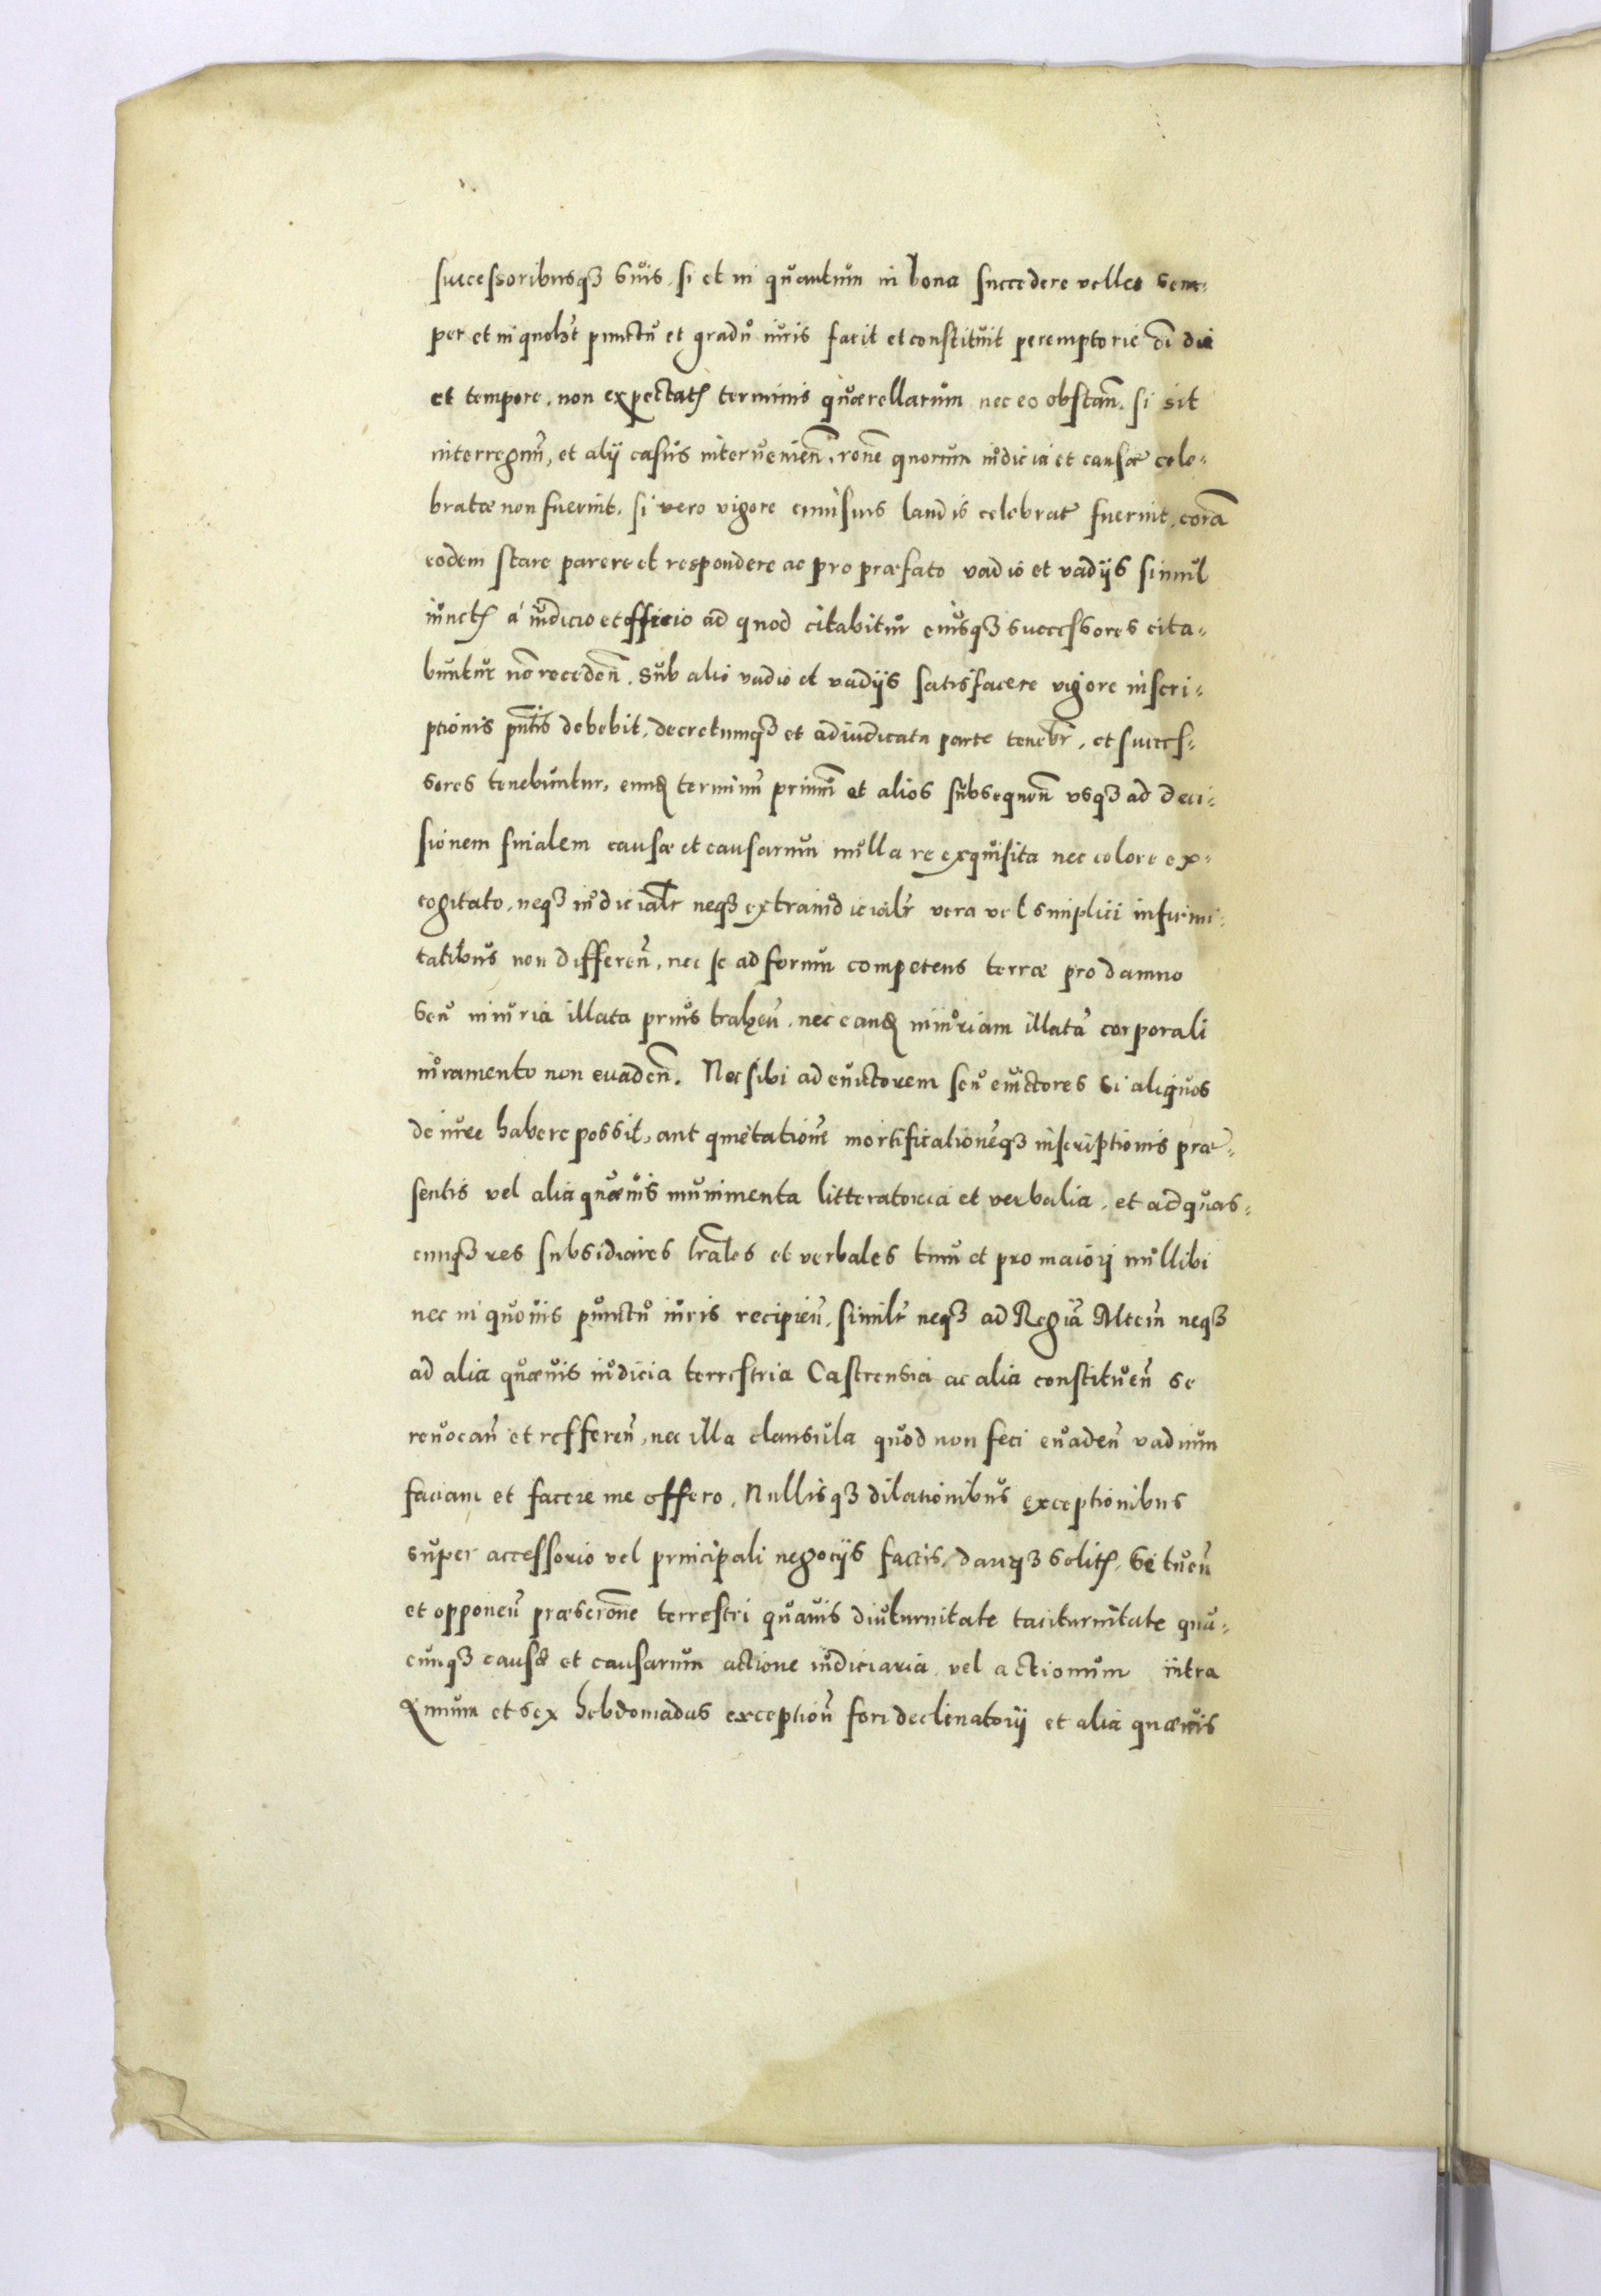 successoribusq3 suis, si et in quantum in bona succedere velles sem-
per et in quolibet punctu et gradu iuris facit et constituit peremptorie oi die
et tempore, non expectatis terminis quærellarum nec eo obstan. si sit
interregnu, et alij casus intervenien, rone quorum iudicia et causæ cele-
bratæ non fuerint, si vero vigore laudis celebrat fuerint, cora
eodem stare parere et respondere ac pro præfato vadio et vadijs simul
iunctis á iudicio et officio ad quod citabitur eiusq3 successores cita-
buntur no receden. Sub alio vadio et vadijs satisfacere vigore inscri-
ptionis pntis debebit, decretumq3 et adiudicata parte tenebr, et succes-
sores tenebuntur, eund terminu primu et alios subsequen usq3 ad deci-
sionem finalem causæ et causarum nulla re exquisita nec colore ex-
cogitato, neq3 iudicialr neq3 extraiudicialr vera vel simplici infirmi-
tatibus non differen, nec se ad forum competens terræ pro damno
seu iniuria illata prius trahen, nec eand iniuriam illata corporali
iuramento non evaden. Nec sibi ad evictorem seu evictores si aliquos
de iure habere possit, aut quietatione mortificationeq3 inscriptionis præ-
sentis vel alia quævis munimenta litteratoria et verbalia, et ad quas-
cunq3 res subsidiares lrales et verbales tum et pro maiori nullibi
nec in quovis punctu iuris recipien, similr neq3 ad Regia Mtem neq3
ad alia quævis iudicia terrestria Castrensia ac alia constituen se
revocan et refferen, nec illa clausula quod non feci evaden vadium
faciam et facere me offero, Nullisq3 dilationibus exceptionibus
super accessorio vel principali negocijs factis, dariq3 solitis, se tuen
et opponen præscrone terrestri quavis diuturnitate taciturnitate qua-
cunq3 causæ et causarum actione iudiciaria vel actionum intra
et sex hebdomadas exception fori declinatorij et alia quævis